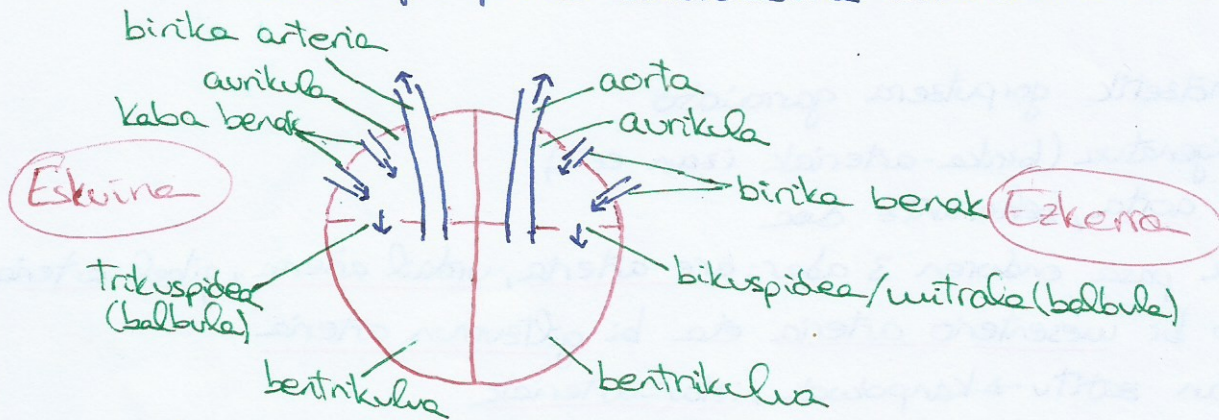 birika arteria
aurikula
Kaba benak
Eskuina
Trikuspidea
(balbula)
bentrikulua
aorta
aurikula
birika benak
Ezkerra
bikuspidea/mitrala (balbula)
bentrikulua